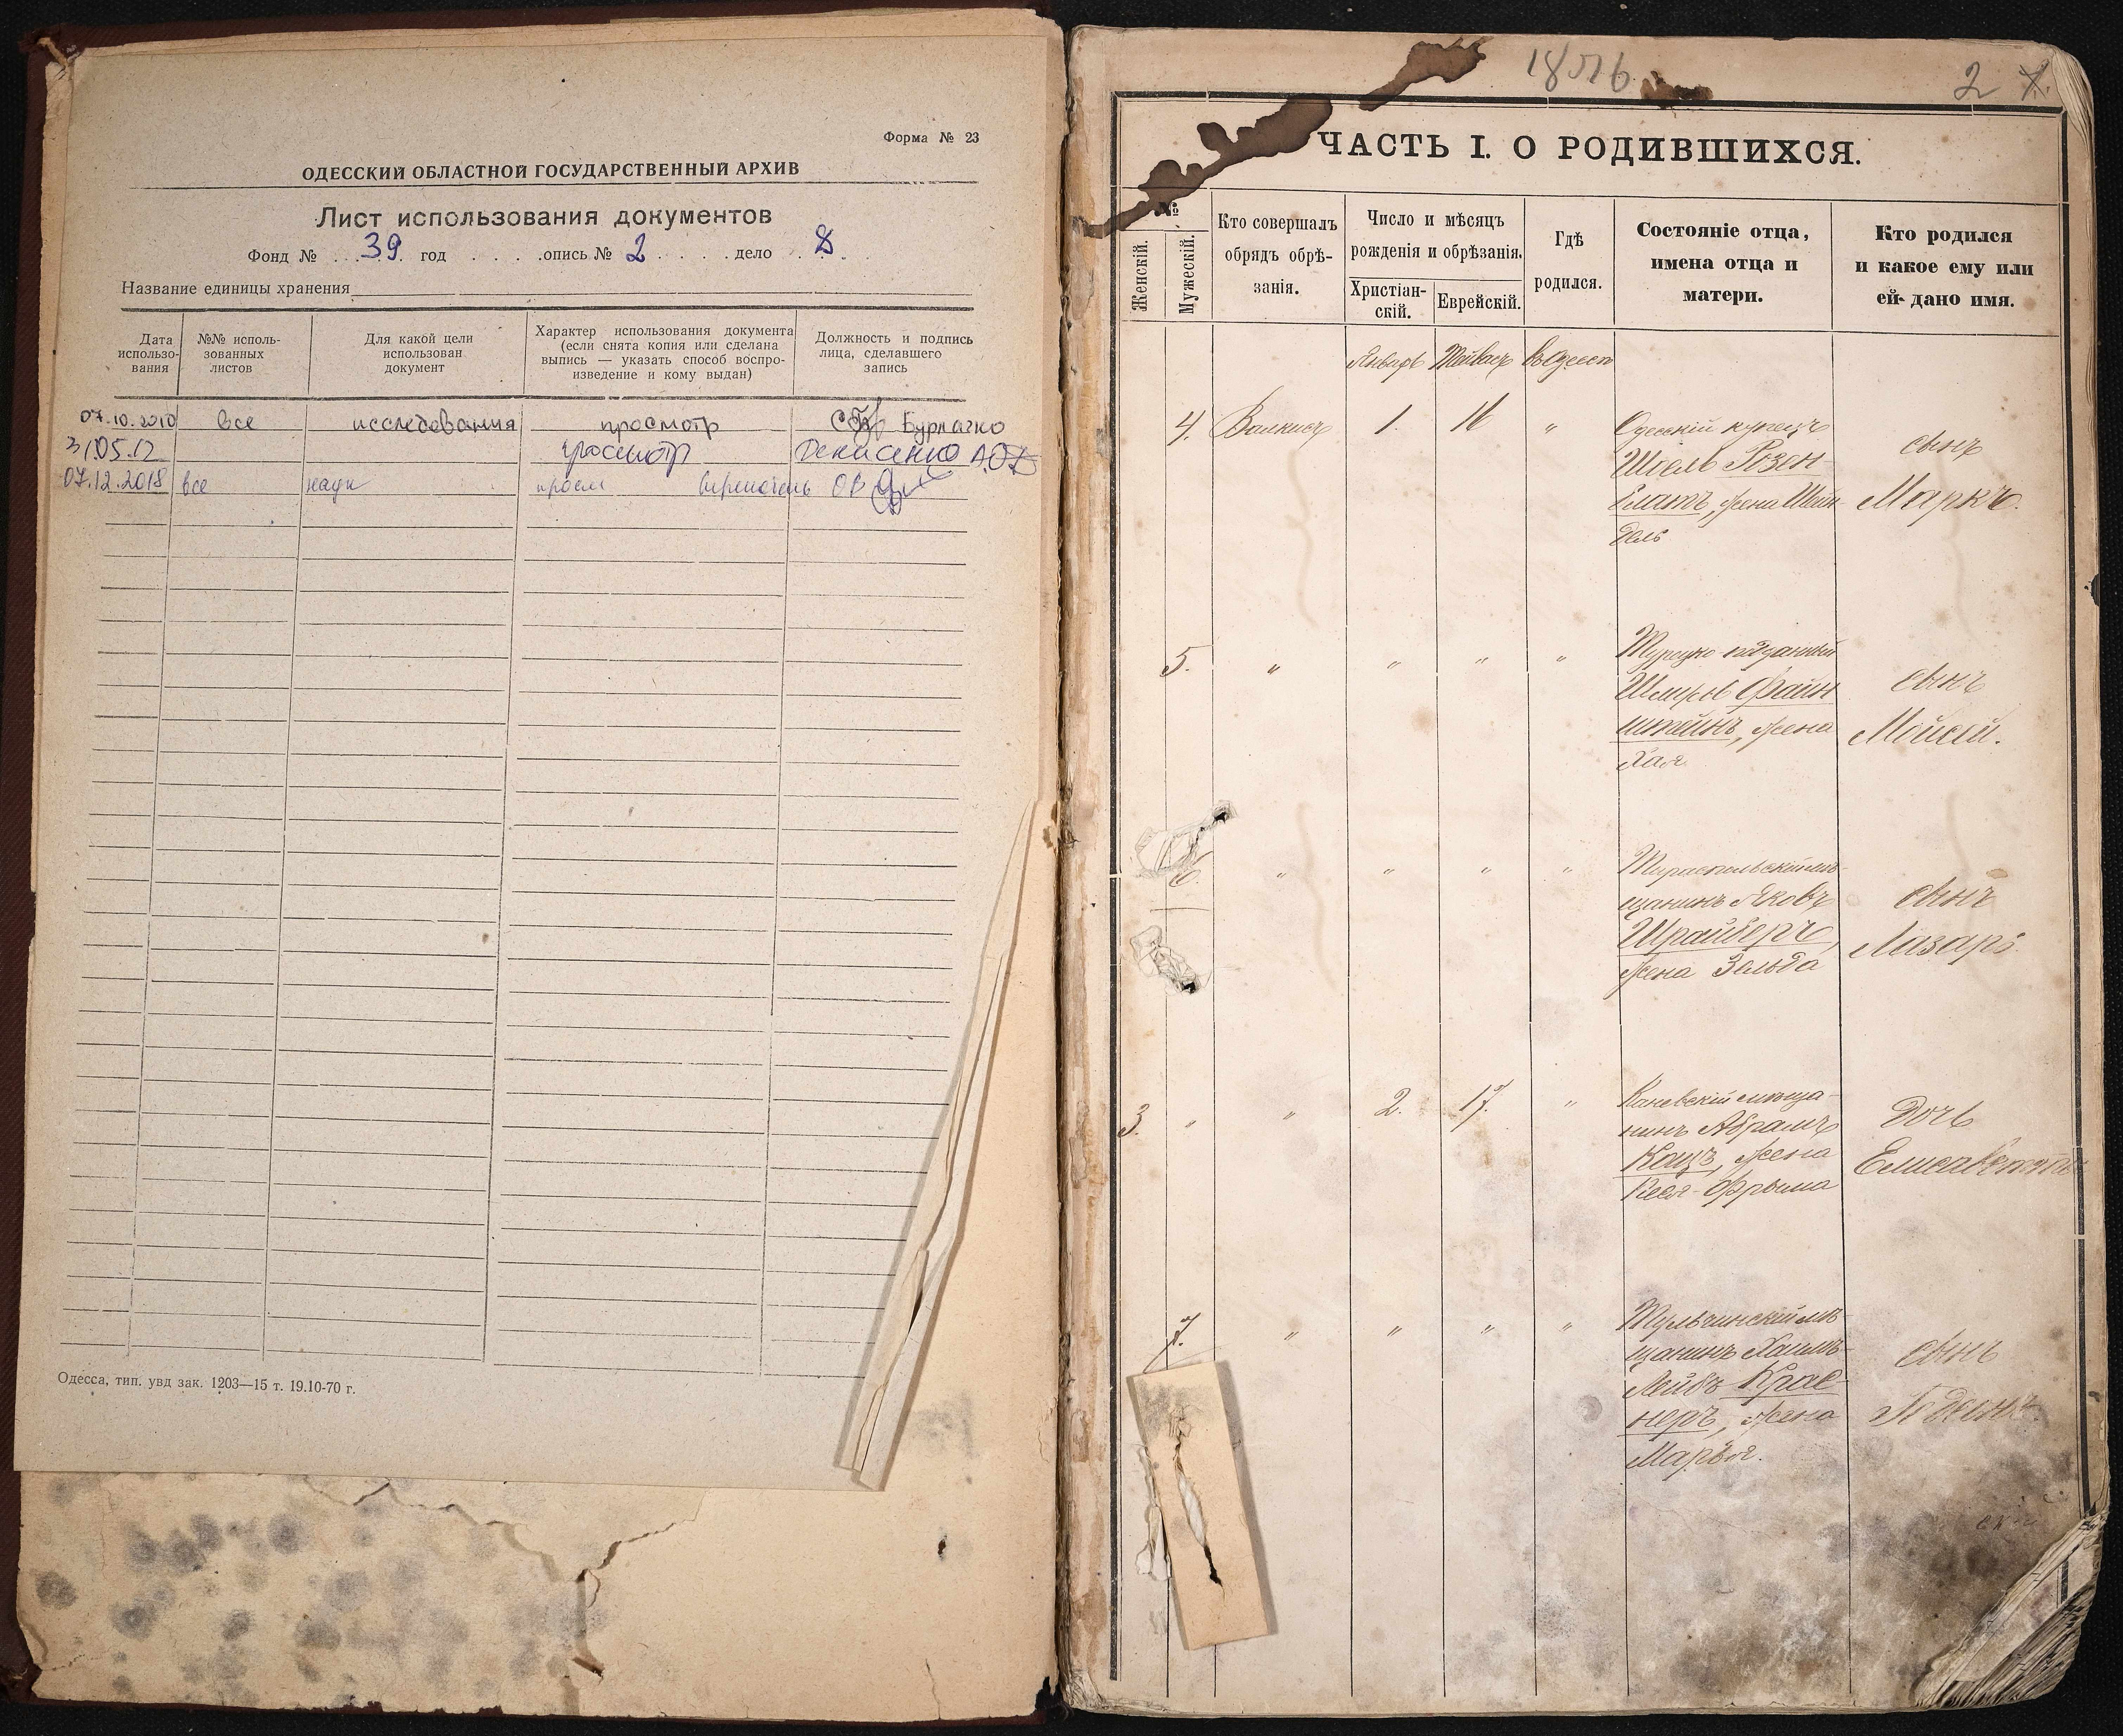 Форма № 23
ОДЕССКИЙ ОБЛАСТНОЙ ГОСУДАРСТВЕННЫЙ АРХИВ
Лист использования документов
Фонд № 39 год опись № 2 дело 8
Название единицы хранения
Дата использо-вания
№№ исполь-зованных листов
Для какой цели использован документ
Характер использования документа (если снята копия или сделана выпись — указать способ воспро-изведение и кому выдан)
Должность и подпись лица, сделавшего запись
07.10.2010 все исследования просмотр Бурлачко
31.05.12 просмотр Денисенко А.О.
07.12.2018 все наук просм
Одесса, тип. увд зак. 1203—15 т. 19.10-70 г.
1876
2
ЧАСТЬ I. О РОДИВШИХСЯ.
№
Женскій.
Мужескій.
Кто совершалъ
обрядъ обрѣ-
занія.
Число и мѣсяцъ
рожденія и обрѣзанія.
Христіан-
скій.
Еврейскій.
Гдѣ
родился.
Состояніе отца,
имена отца и
матери.
Кто родился
и какое ему или
ей дано имя.
Январь Тейвасъ въ Одессѣ
4. 1. 16 "
Одесскій купецъ
Шоель Розен-
блатъ, жена Шейн-
дель
сынъ
Маркъ.
5. " " " "
Турецко-подданный
Шмирь Файн
штейнъ, жена
Хая
сынъ
Мойсей.
6. " " " "
Тираспольскій мѣ-
щанинъ Яковъ
Шрайберъ,
жена Зельда
сынъ
Лазарь.
3. " " 2. 17. "
Каневскій мѣща-
нинъ Абрамъ
Кацъ, жена
Фрыма
дочь
Елисавета
7. " " " "
Тульчинскій мѣ-
щанинъ Хаимъ-
Лейбъ Крас-
неръ, жена
Марья.
сынъ